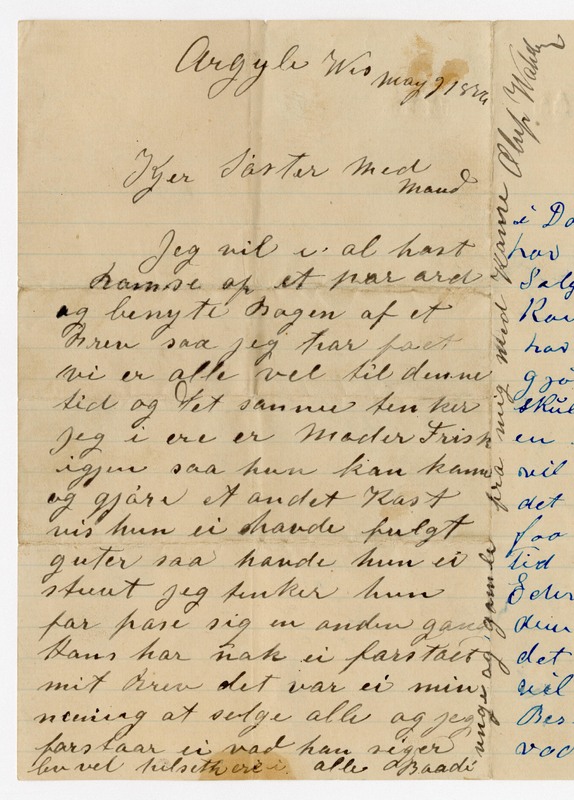 Argyle Wis
May 9 1884
Kjer Søster med
Mand
Jeg vil i al hast
ramse op et par ord
og benyte Bagen af et
Brev saa jeg har faet
vi er alle vel til denne
tid og det samme tenker
jeg i ere er Moder Frisk
igjen saa hun kan kome
og gjøre et andet Kast
vis hun ei havde fulgt
guter saa havde hun ei
jeg tenker hun
far pase sig en anden gang
Hans har nok ei forstaet
mit Brev det var ei min
mening at selge alle og jeg
forstaar ei vad han siger
lev vel alle Baade
unge og gamle fra mig med Kone
i Da
har
Salg
Kan
har
gjø
skul
en
vil
det
faa
tid
Eder
den
det
vil
Bes
vad